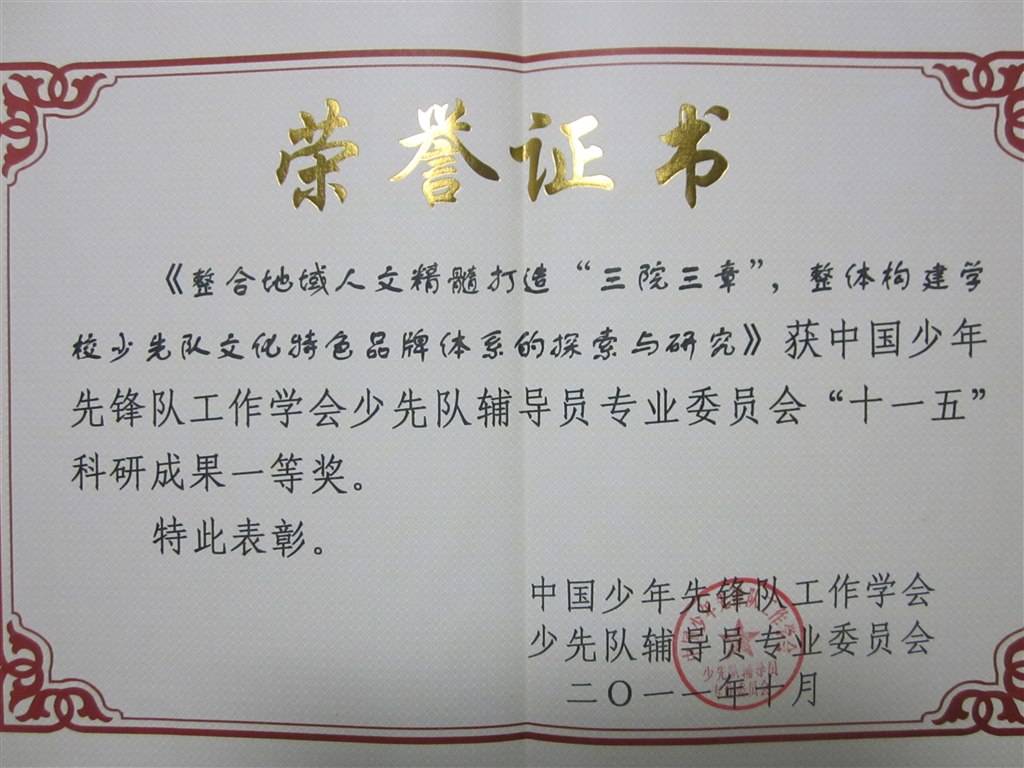 荣誉证书
《整合地域人文精髓打造“三院三章”，整体构建学
校少先队文化特色品牌体系的探索与研究》获中国少年
先锋队工作学会少先队辅导员专业委员会“十一五”
科研成果一等奖。
特此表彰。
中国少年先锋队工作学会
少先队辅导员专业委员会
二〇一一年十月
中国少年先锋队工作学会
少先队辅导员
专业委员会